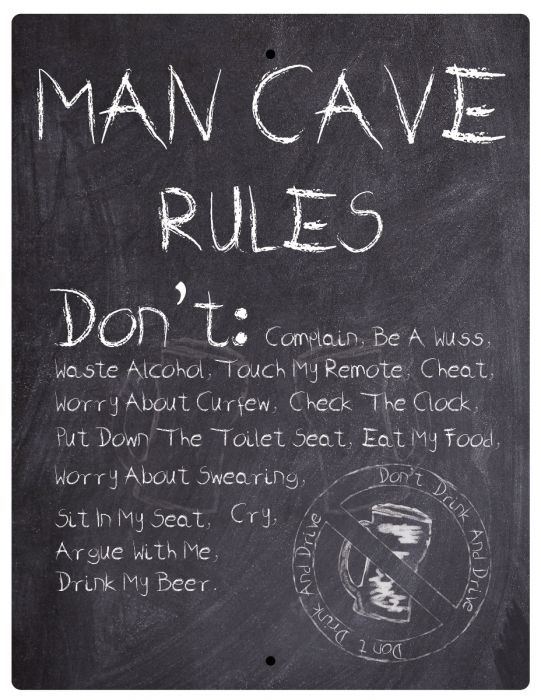 MAN CAVE
RULES
Don't: Complain, Be A Wuss,
Waste Alcohol, Touch My Remote, Cheat,
Worry About Curfew, Check The Clock,
Put Down The Toilet Seat, Eat My Food,
Worry About Swearing,
Sit In My Seat, Cry,
Argue With Me,
Drink My Beer.
Don't Drink And Drive
Don't Drink And Drive